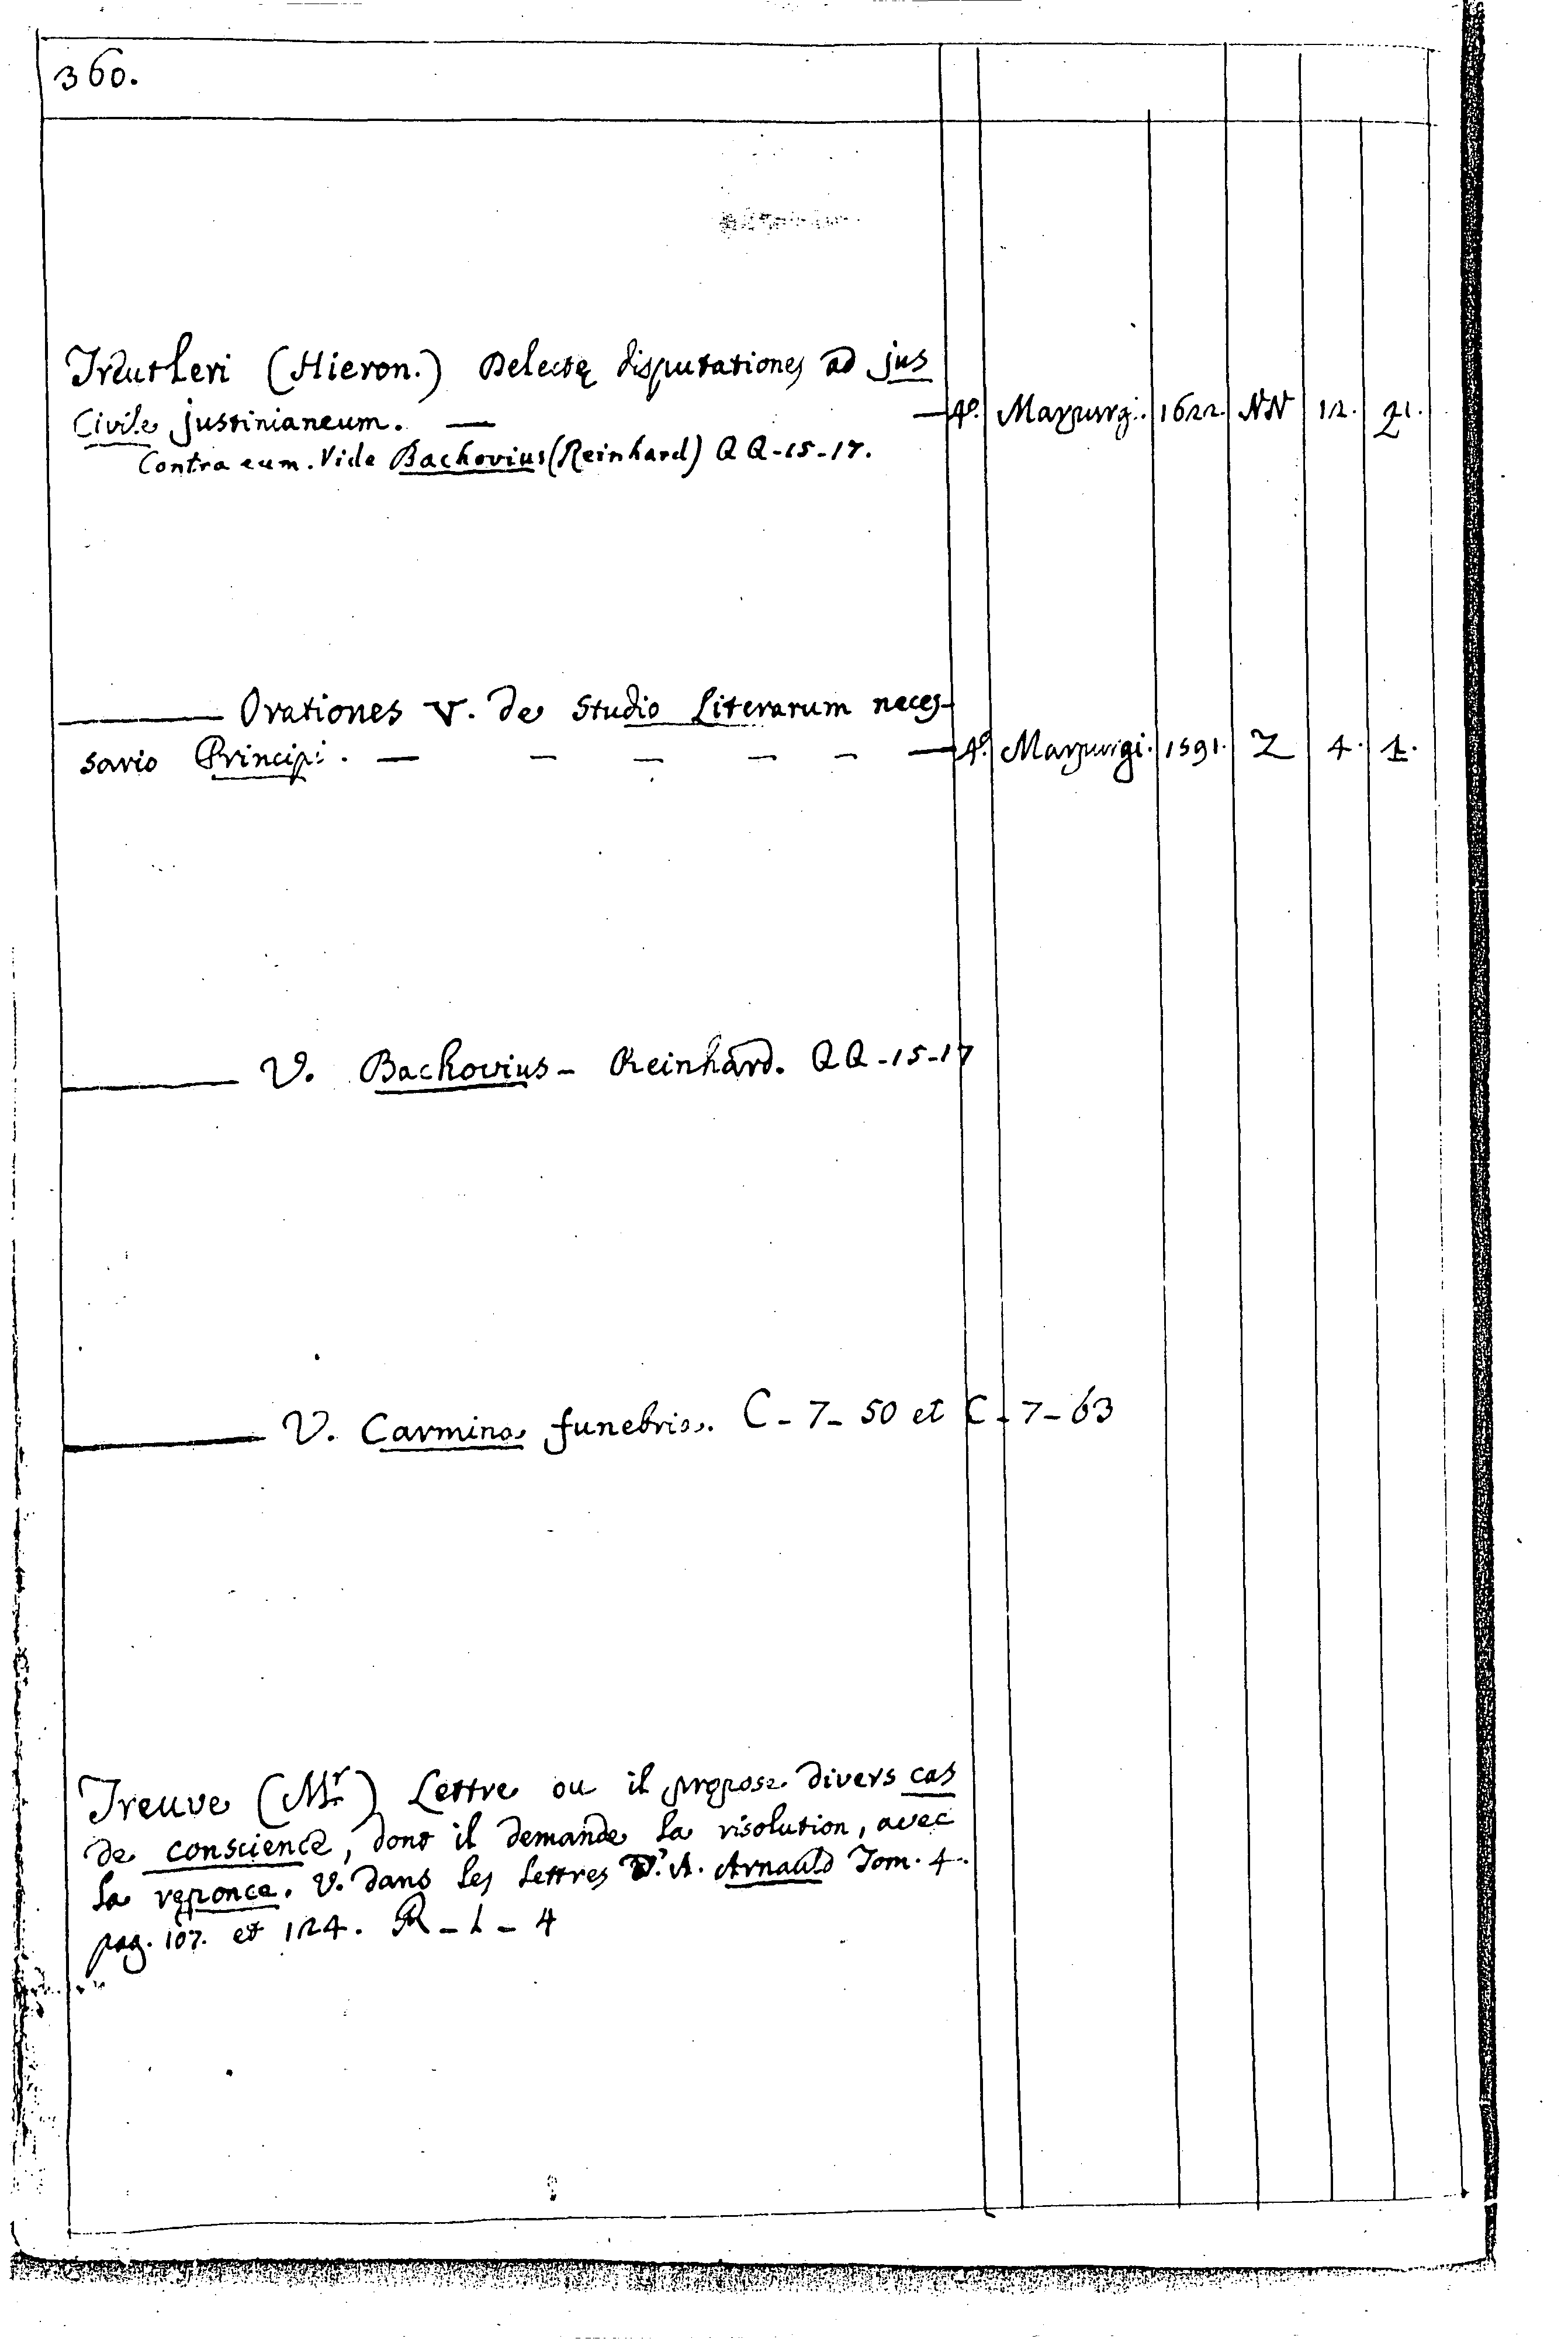 360.
Treutleri (Hieron.) Selectę disputationes ad jus
Civile justinianeum. — — 4º. Marpurgi. 1622. NN 12. 21.
Contra eum. Vide Bachovius (Reinhard) QQ-15-17.
——— Orationes V. de studio Literarum neces-
sario Principi. — — — — — — 4º. Marpurgi. 1591. Z 4. 1.
——— V. Bachovius - Reinhard. QQ-15-17
——— V. Carmina funebria. C-7-50 et C-7-63
Treuve (Mr) Lettre ou il propose divers cas
de conscience, dont il demande la résolution, avec
la reponce. V. dans les lettres d'A. Arnauld Tom. 4.
pag. 107. et 124. R-1-4